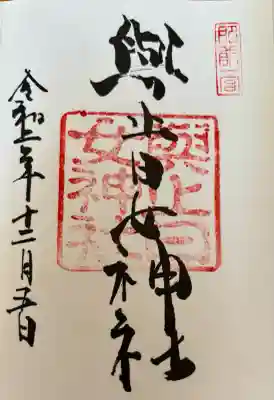 肥前一宮
與止日女神社
與止日
女神社
令和二年十二月五日